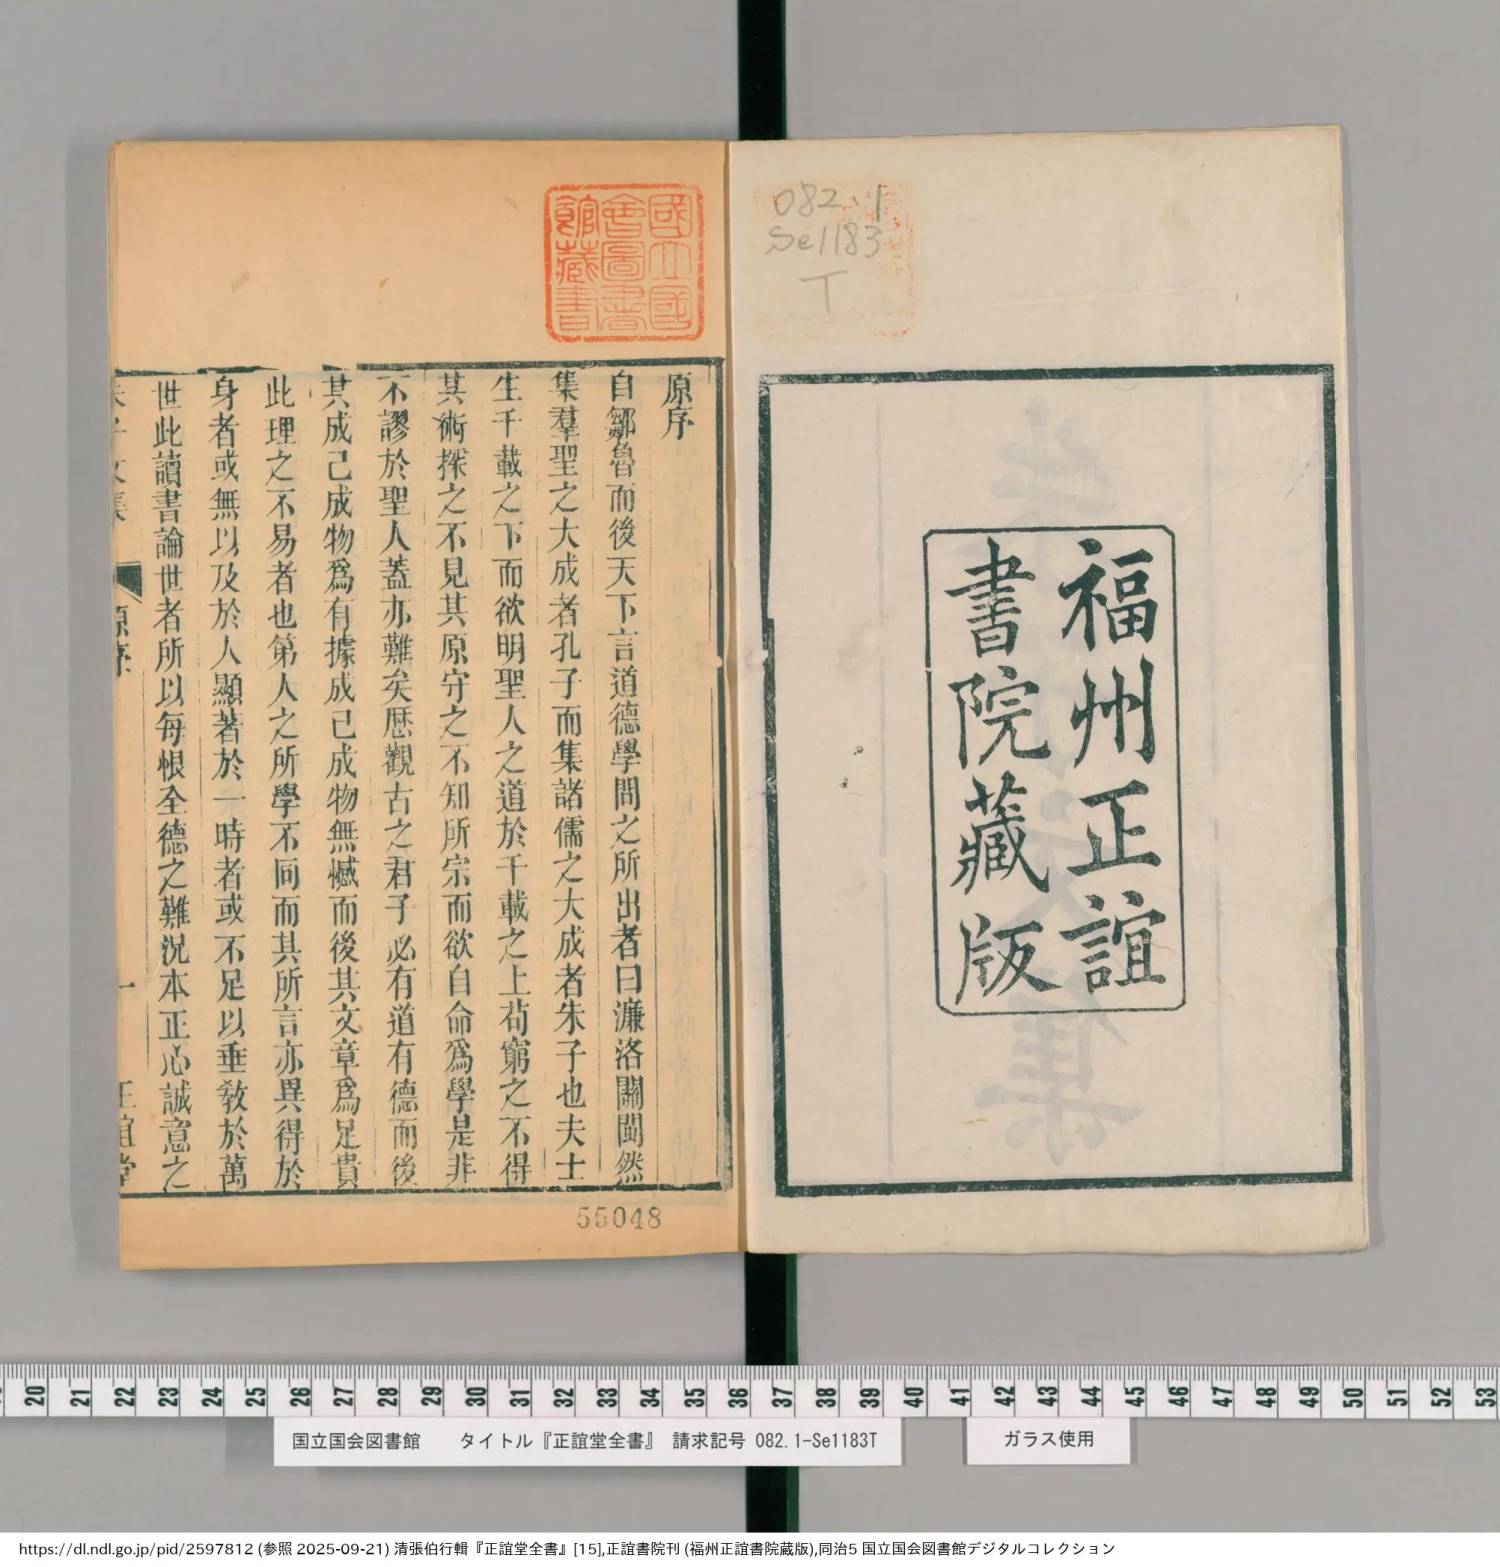 082.1
Se1183
T
福州正誼
書院藏版
國立國
會圖書
館藏書
原序
自鄒魯而後天下言道德學問之所出者曰濂洛關閩然
集羣聖之大成者孔子而集諸儒之大成者朱子也夫士
生千載之下而欲明聖人之道於千載之上苟窮之不得
其術探之不見其原守之不知所宗而欲自命爲學是非
不謬於聖人蓋亦難矣歷觀古之君子必有道有德而後
其成己成物爲有據成己成物無憾而後其文章爲足貴
此理之不易者也第人之所學不同而其所言亦異得於
身者或無以及於人顯著於一時者或不足以垂敎於萬
世此讀書論世者所以每恨全德之難況本正心誠意之
朱子文集 原序 一 正誼堂
55048
20 21 22 23 24 25 26 27 28 29 30 31 32 33 34 35 36 37 38 39 40 41 42 43 44 45 46 47 48 49 50 51 52 53
国立国会図書館 タイトル『正誼堂全書』 請求記号 082.1-Se1183T
ガラス使用
https://dl.ndl.go.jp/pid/2597812 (参照 2025-09-21) 清張伯行輯『正誼堂全書』[15],正誼書院刊 (福州正誼書院蔵版),同治5 国立国会図書館デジタルコレクション